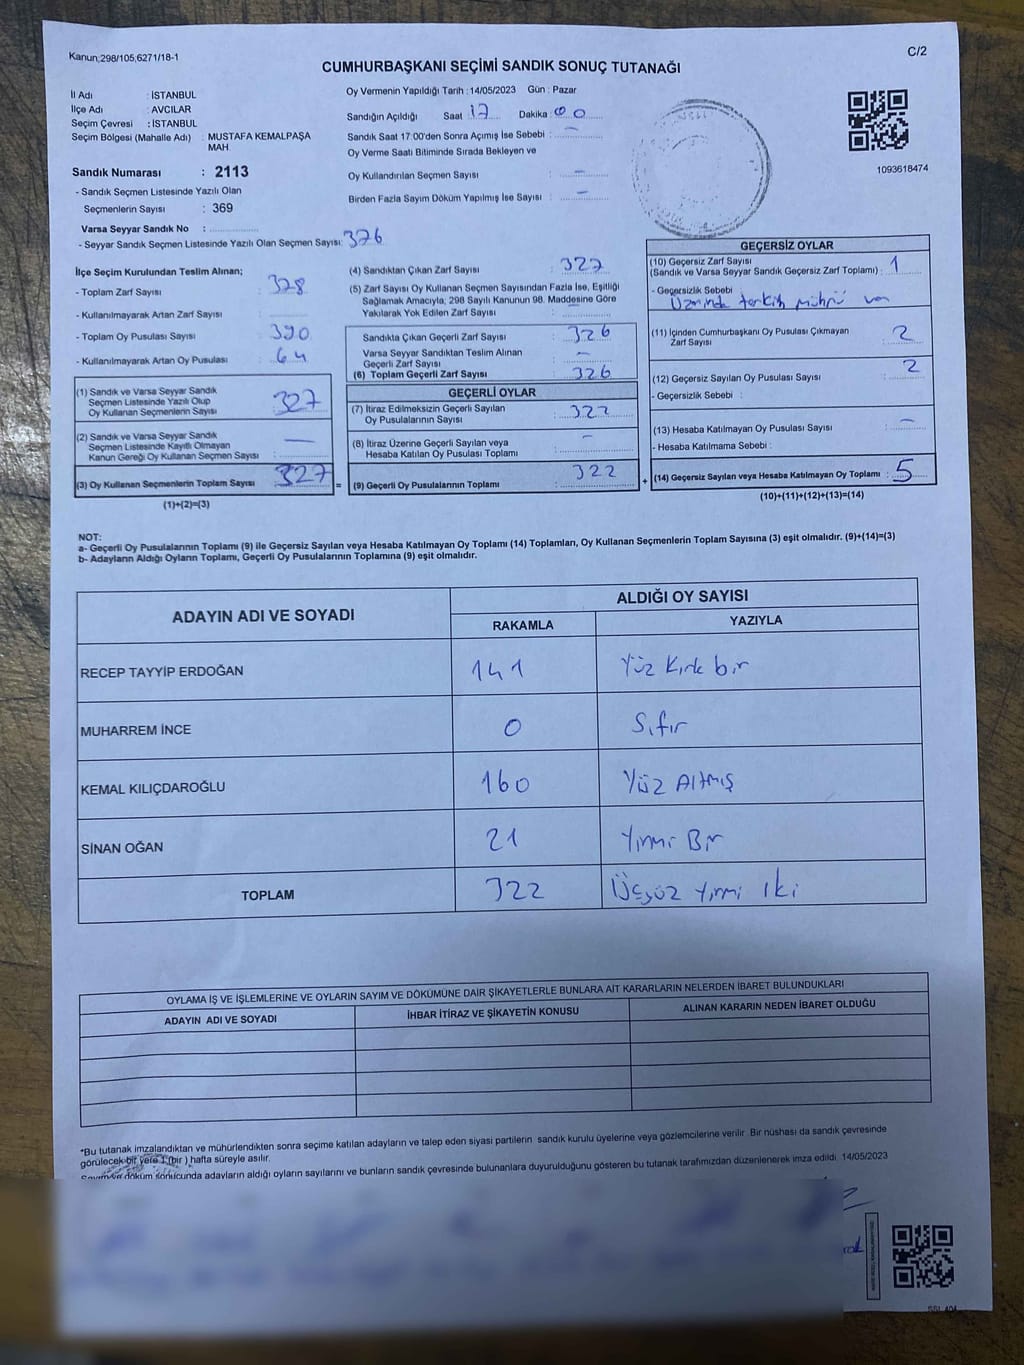 Kanun;298/105;6271/18-1
C/2
CUMHURBAŞKANI SEÇİMİ SANDIK SONUÇ TUTANAĞI
İl Adı : İSTANBUL
İlçe Adı : AVCILAR
Seçim Çevresi : İSTANBUL
Seçim Bölgesi (Mahalle Adı) : MUSTAFA KEMALPAŞA MAH.
Sandık Numarası : 2113
- Sandık Seçmen Listesinde Yazılı Olan
Seçmenlerin Sayısı : 369
Varsa Seyyar Sandık No :
- Seyyar Sandık Seçmen Listesinde Yazılı Olan Seçmen Sayısı: 376
Oy Vermenin Yapıldığı Tarih : 14/05/2023 Gün : Pazar
Sandığın Açıldığı Saat 17 Dakika : 00
Sandık Saat 17:00'den Sonra Açımış İse Sebebi : —
Oy Verme Saati Bitiminde Sırada Bekleyen ve
Oy Kullandırılan Seçmen Sayısı : —
Birden Fazla Sayım Döküm Yapılmış İse Sayısı : —
1093618474
İlçe Seçim Kurulundan Teslim Alınan;
- Toplam Zarf Sayısı : 328
- Kullanılmayarak Artan Zarf Sayısı :
- Toplam Oy Pusulası Sayısı : 390
- Kullanılmayarak Artan Oy Pusulası : 64
(1) Sandık ve Varsa Seyyar Sandık
Seçmen Listesinde Yazılı Olup
Oy Kullanan Seçmenlerin Sayısı : 327
(2) Sandık ve Varsa Seyyar Sandık
Seçmen Listesinde Kayıtlı Olmayan
Kanun Gereği Oy Kullanan Seçmen Sayısı : —
(3) Oy Kullanan Seçmenlerin Toplam Sayısı : 327 =
(1)+(2)=(3)
(4) Sandıktan Çıkan Zarf Sayısı : 327
(5) Zarf Sayısı Oy Kullanan Seçmen Sayısından Fazla İse, Eşitliği
Sağlamak Amacıyla, 298 Sayılı Kanunun 98. Maddesine Göre
Yakılarak Yok Edilen Zarf Sayısı :
Sandıkta Çıkan Geçerli Zarf Sayısı : 326
Varsa Seyyar Sandıktan Teslim Alınan
Geçerli Zarf Sayısı : —
(6) Toplam Geçerli Zarf Sayısı : 326
GEÇERLİ OYLAR
(7) İtiraz Edilmeksizin Geçerli Sayılan
Oy Pusulalarının Sayısı : 322
(8) İtiraz Üzerine Geçerli Sayılan veya
Hesaba Katılan Oy Pusulası Toplamı : —
(9) Geçerli Oy Pusulalarının Toplamı : 322 +
GEÇERSİZ OYLAR
(10) Geçersiz Zarf Sayısı
(Sandık ve Varsa Seyyar Sandık Geçersiz Zarf Toplamı) : 1
- Geçersizlik Sebebi
Üzerinde tercih mührü var
(11) İçinden Cumhurbaşkanı Oy Pusulası Çıkmayan
Zarf Sayısı : 2
(12) Geçersiz Sayılan Oy Pusulası Sayısı : 2
- Geçersizlik Sebebi :
(13) Hesaba Katılmayan Oy Pusulası Sayısı : —
- Hesaba Katılmama Sebebi :
(14) Geçersiz Sayılan veya Hesaba Katılmayan Oy Toplamı : 5
(10)+(11)+(12)+(13)=(14)
NOT:
a- Geçerli Oy Pusulalarının Toplamı (9) ile Geçersiz Sayılan veya Hesaba Katılmayan Oy Toplamı (14) Toplamları, Oy Kullanan Seçmenlerin Toplam Sayısına (3) eşit olmalıdır. (9)+(14)=(3)
b- Adayların Aldığı Oyların Toplamı, Geçerli Oy Pusulalarının Toplamına (9) eşit olmalıdır.
ADAYIN ADI VE SOYADI
ALDIĞI OY SAYISI
RAKAMLA YAZIYLA
RECEP TAYYİP ERDOĞAN 141 Yüz Kırk bir
MUHARREM İNCE 0 Sıfır
KEMAL KILIÇDAROĞLU 160 Yüz Altmış
SİNAN OĞAN 21 Yirmi Bir
TOPLAM 322 Üçyüz Yirmi İki
OYLAMA İŞ VE İŞLEMLERİNE VE OYLARIN SAYIM VE DÖKÜMÜNE DAİR ŞİKAYETLERLE BUNLARA AİT KARARLARIN NELERDEN İBARET BULUNDUKLARI
ADAYIN ADI VE SOYADI İHBAR İTİRAZ VE ŞİKAYETİN KONUSU ALINAN KARARIN NEDEN İBARET OLDUĞU
*Bu tutanak imzalandıktan ve mühürlendikten sonra seçime katılan adayların ve talep eden siyasi partilerin sandık kurulu üyelerine veya gözlemcilerine verilir. Bir nüshası da sandık çevresinde
görülecek bir yere 1 (bir ) hafta süreyle asılır.
Sayım ve döküm sonucunda adayların aldığı oyların sayılarını ve bunların sandık çevresinde bulunanlara duyurulduğunu gösteren bu tutanak tarafımızdan düzenlenerek imza edildi. 14/05/2023